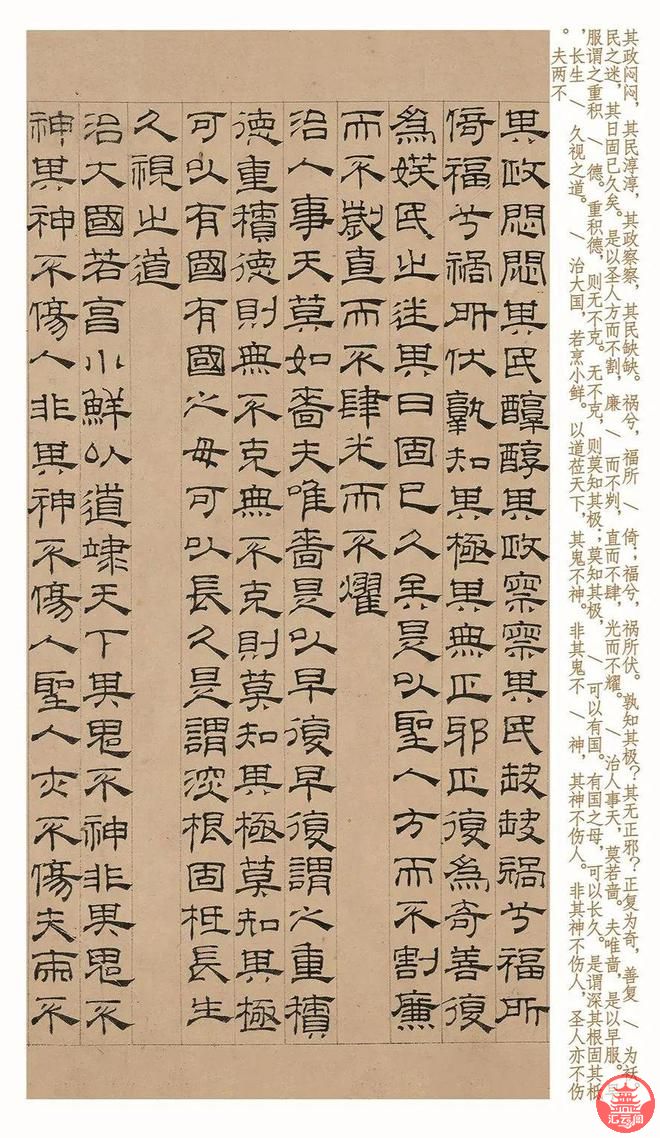 其政闷闷，其民淳淳，其政察察，其民缺缺。祸兮，福所 \ 倚；福兮，祸所伏。孰知其极？其无正邪？正复为奇，善复 \ 为袄。
民之迷，其日固已久矣。是以圣人方而不割，廉 \ 而不刿，直而不肆，光而不耀。 \ 治人事天，莫若啬。夫唯啬，是以早服。早
服谓之重积 \ 德。重积德，则无不克。无不克，则莫知其极；莫知其极， \ 可以有国。有国之母，可以长久。是谓深其根固其柢
，长生 \ 久视之道。 \ 治大国，若烹小鲜。以道莅天下，其鬼不神。非其鬼不 \ 神，其神不伤人。非其神不伤人，圣人亦不伤
。夫两不
其政悶悶其民醇醇其政察察其民缺缺禍兮福所
倚福兮禍所伏孰知其極其無正邪正復為奇善復
為媄民之迷其日固已久矣是以聖人方而不割廉
而不劌直而不肆光而不耀
治人事天莫如嗇夫唯嗇是以早復早復謂之重積
德重積德則無不克無不克則莫知其極莫知其極
可以有國有國之母可以長久是謂深根固柢長生
久視之道
治大國若亯小鮮以道竦天下其鬼不神非其鬼不
神其神不傷人非其神不傷人聖人亦不傷夫兩不
汇云阁